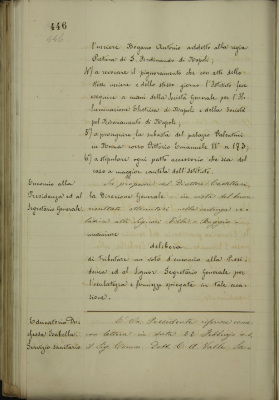 446
l'usciere Bognino Antonio addetto alla regia
Pretura di S. Ferdinando di Napoli;
4°) a revocare il pignoramento che con atti dello
stesso usciere e dello stesso giorno l'Istituto fece
eseguire a mani della Società Generale per l'Il-
luminazione Elettrica di Napoli e della Società
pel Risanamento di Napoli;
5°) a prorogare la subasta del palazzo Valentini
in Roma corso Vittorio Emanuele N° 173;
6°) a stipulare ogni patto accessorio che sia del
caso a maggior cautela dell'Istituto.
Encomio alla
Presidenza ed al
Segretario Generale
Su proposta del Direttore
la Direzione Generale, in vista del buon
risultato ottenuto nella
delibera
di tributare un voto d'encomio alla Presi-
denza ed al Signor Segretario Generale per
l'oculatezza e fermezza spiegata in tale occa-
sione.
Educatorio Pri-
pessa Isabella
Servizio sanitario
Il Vice Presidente riferisce come
con lettera in data 22 Febbraio
il Sig. Comm. Dott.